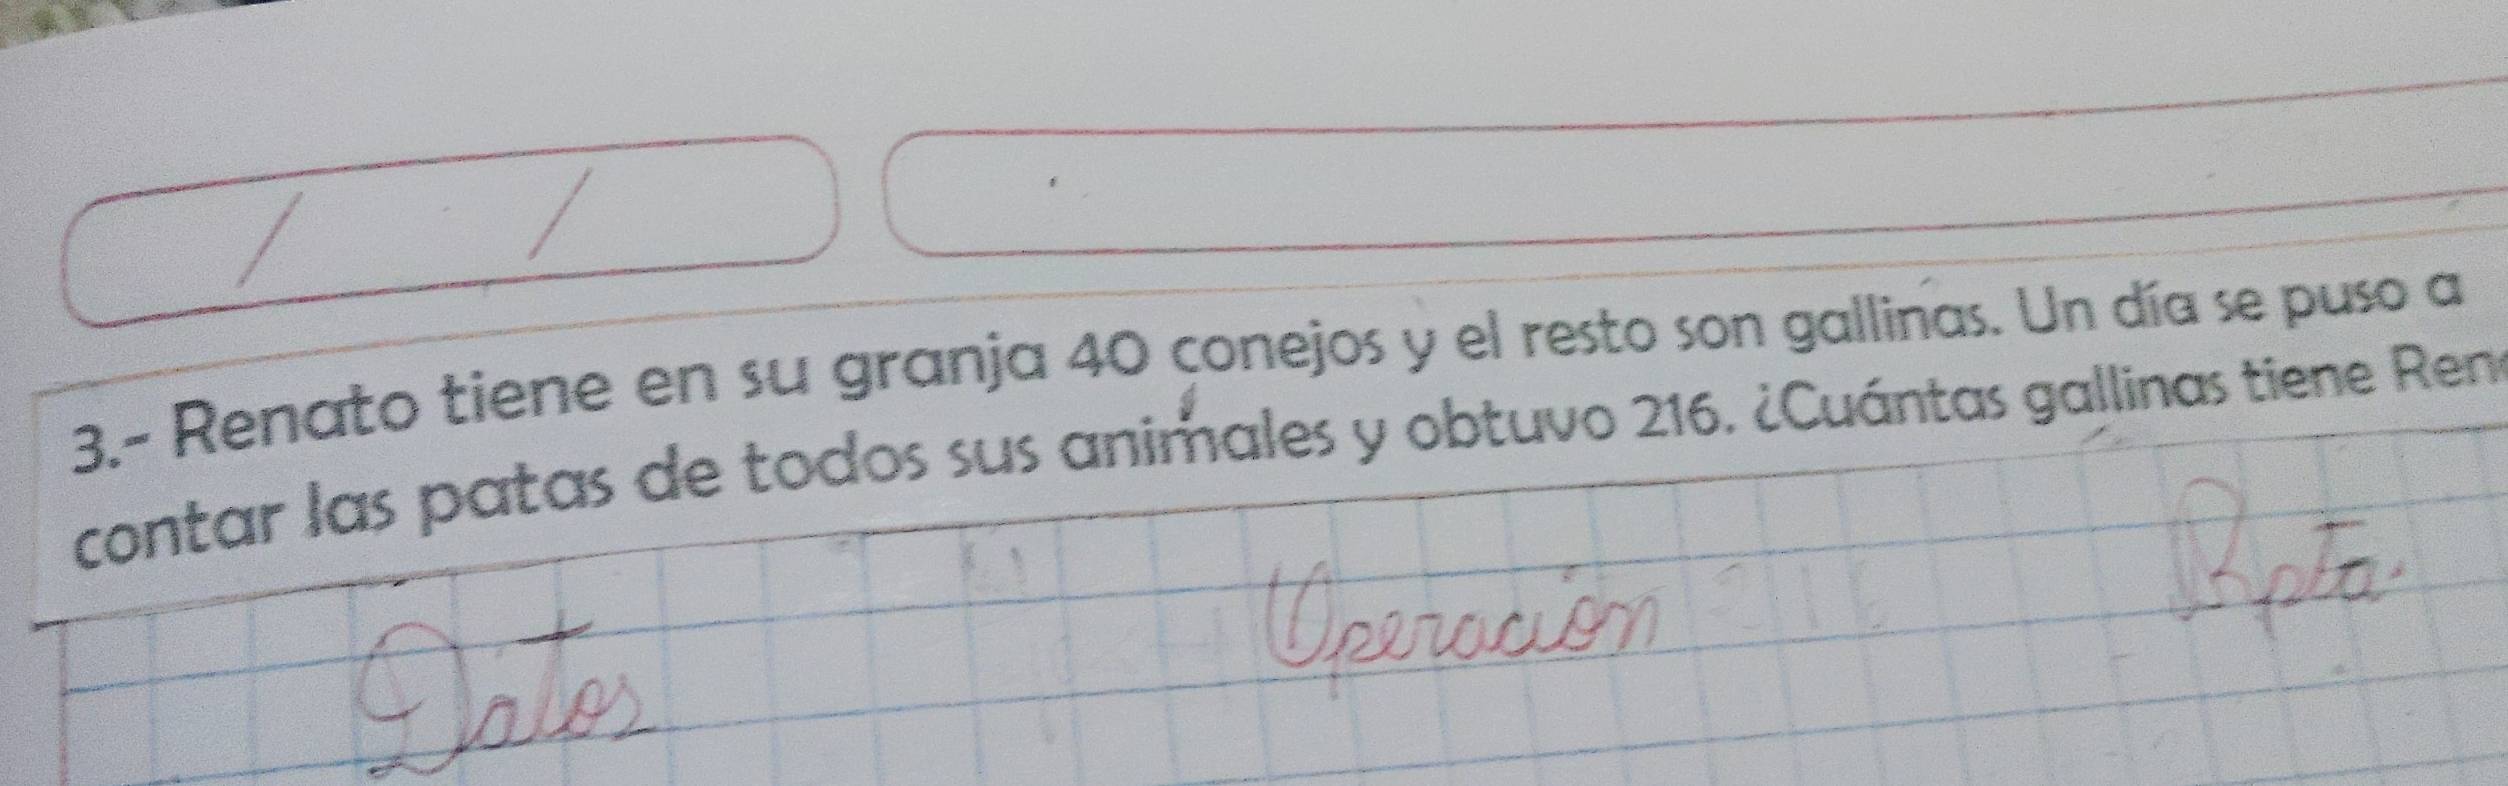 / /
3.- Renato tiene en su granja 40 conejos y el resto son gallinas. Un día se puso a
contar las patas de todos sus animales y obtuvo 216. ¿Cuántas gallinas tiene Ren
Datos Operación Rpta.